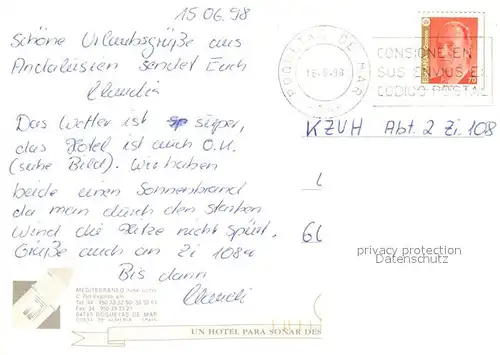 15.06.98
Schöne Urlaubsgrüße aus
Andalusien sendet Euch
Claudia
Das Wetter ist super,
das Hotel ist auch O.K.
(siehe Bild). Wir haben
beide einen Sonnenbrand
da man durch den starken
Wind die Hitze nicht spürt.
Grüße auch an Zi 108a
Bis dann
Claudi
ROQUETAS DE MAR
16-6-98
CONSIGNE EN
SUS ENVIOS E
CODIGO POSTAL
KZVH Abt. 2 Zi 108
60
privacy protection
Datenschutz
MEDITERRANEO PARK HOTEL
04740 ROQUETAS DE MAR
UN HOTEL PARA SOÑAR DES